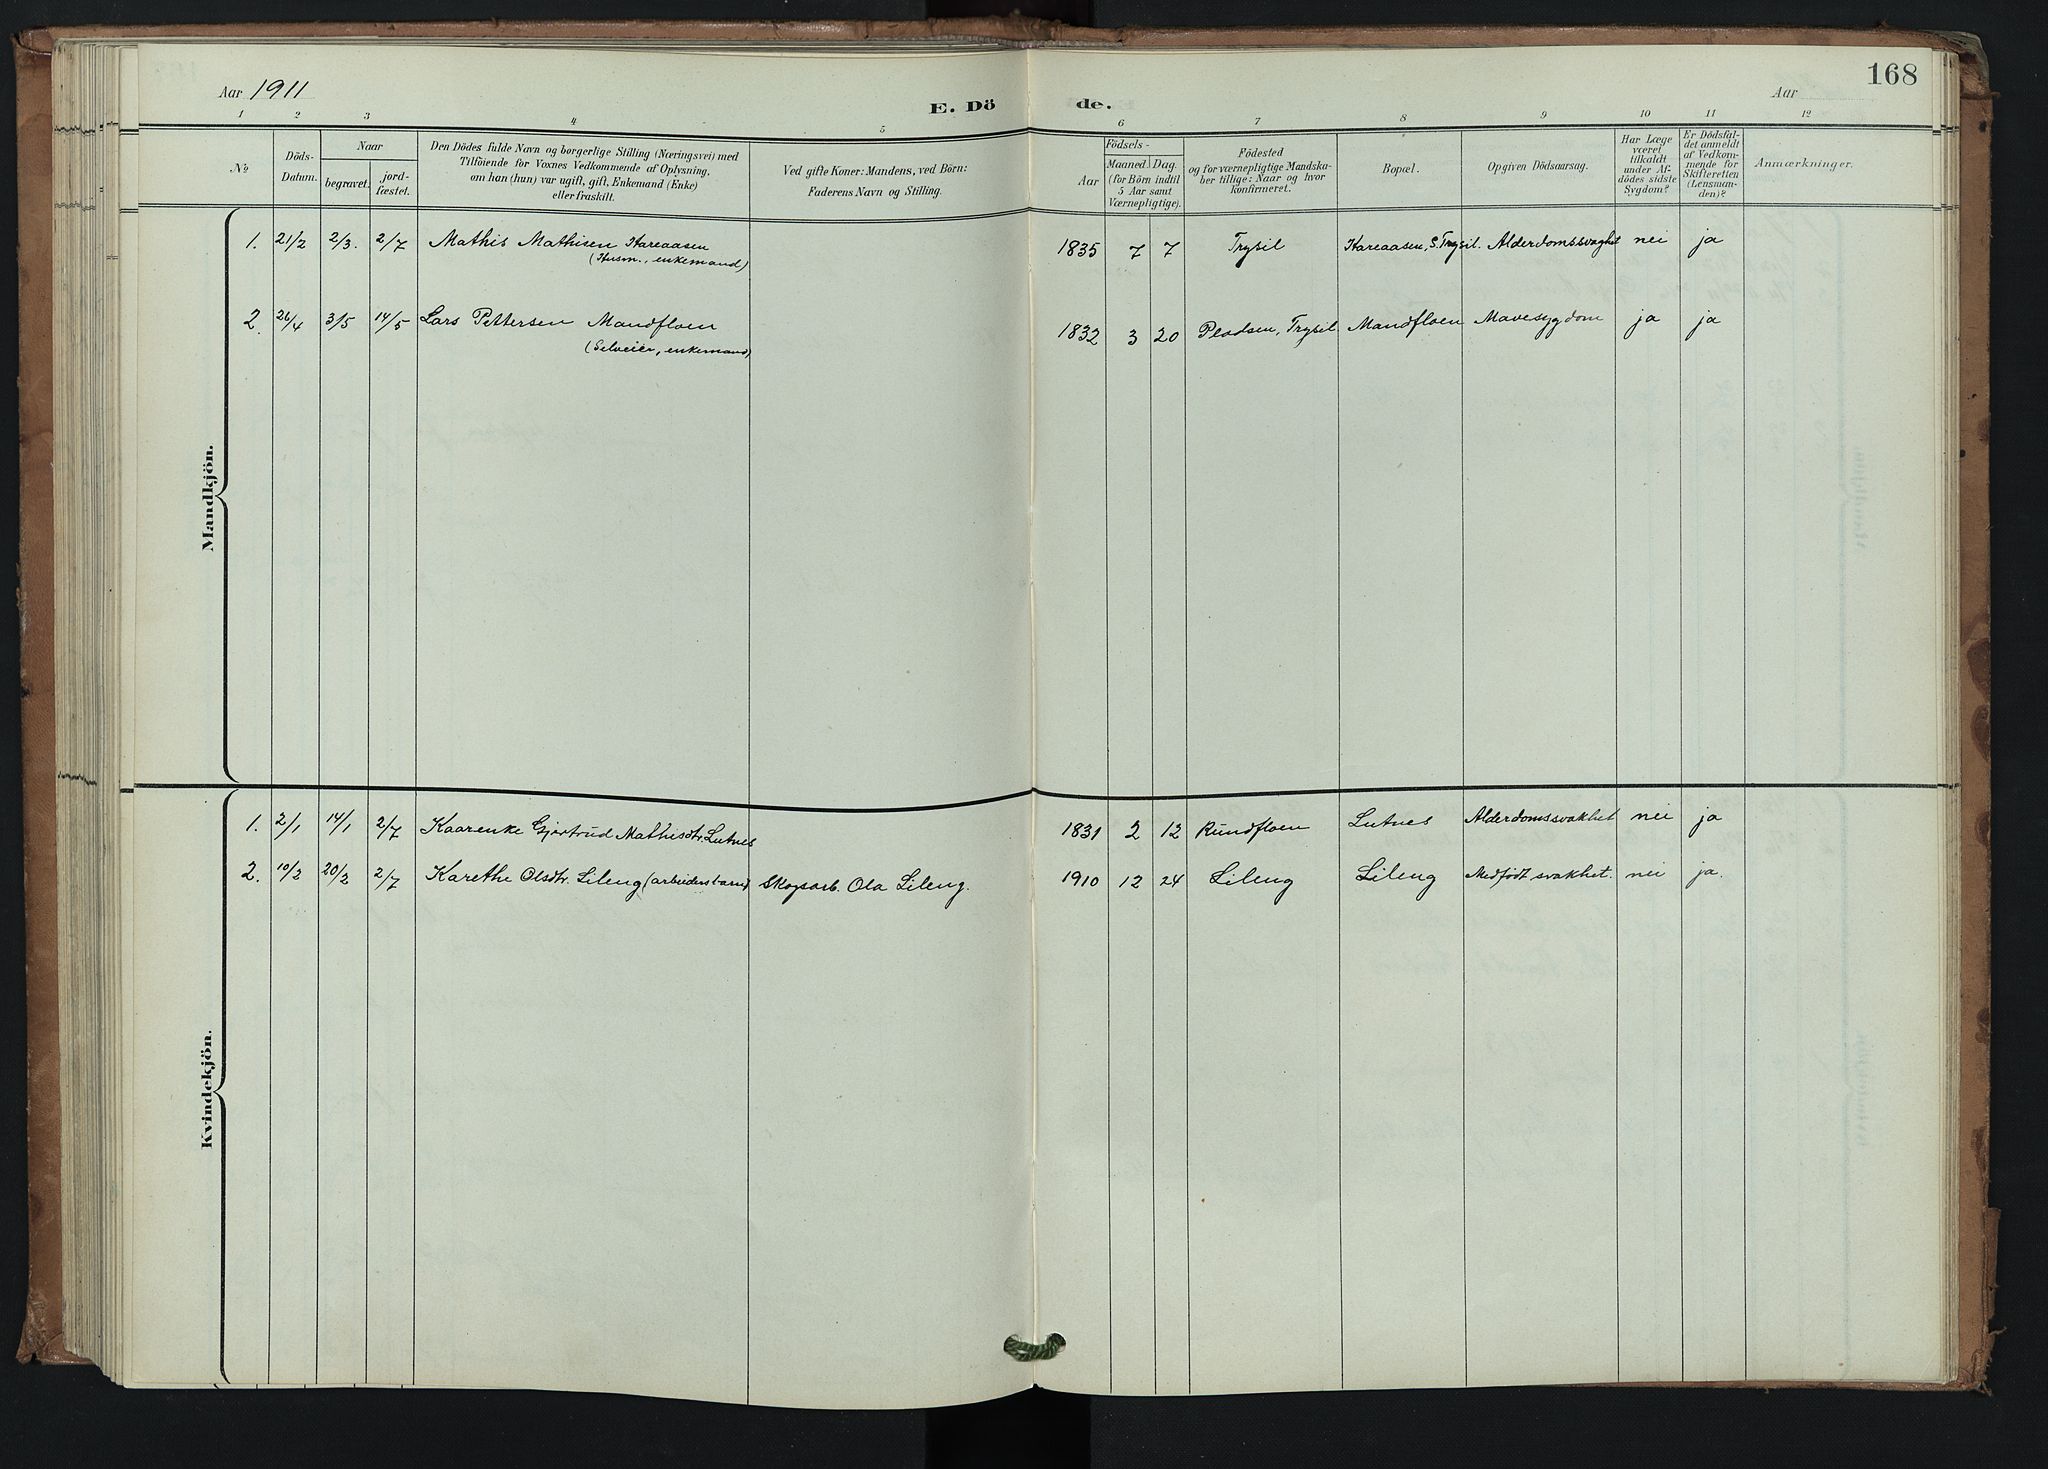 168
Aar 1911
E. Dö de.
Aar
1 2 3 4 5 6 7 8 9 10 11 12
№
Döds-
Datum.
Naar
begravet.
jord-
fæstet.
Den Dödes fulde Navn og borgerlige Stilling (Næringsvei) med
Tilföiende for Voxnes Vedkommende af Oplysning,
om han (hun) var ugift, gift, Enkemand (Enke)
eller fraskilt.
Ved gifte Koner: Mandens, ved Börn:
Faderens Navn og Stilling.
Födsels-
Aar
Maaned Dag
(for Börn indtil
5 Aar samt
Værnepligtige).
Födested
og for værnepligtige Mandska-
ber tillige: Naar og hvor
konfirmeret.
Bopæl.
Opgiven Dödsaarsag.
Har Læge
været
tilkaldt
under Af-
dödes sidste
Sygdom?
Er Dödsfal-
det anmeldt
af Vedkom-
mende for
Skifteretten
(Lensman-
den)?
Anmærkninger.
Mandkjön.
1. 21/2 2/3. 2/7 Mathis Mathisen Hareaasen 1835 7 7 Trysil Hareaasen, S. Trysil. Alderdomssvaghet nei ja
(Husm., enkemand)
2. 26/4 3/5 14/5 Lars Pettersen Mandfloen 1832 3 20 Pladsen, Trysil Mandfloen Mavesygdom ja ja
(Selveier, enkemand)
Kvindekjön.
1. 2/1 14/1 2/7 Kaarenke Gjertrud Mathisdtr. Lutnes 1831 2 12 Rundfloen Lutnes Alderdomssvakhet nei ja
2. 10/2 20/2 2/7 Karethe Olsdtr. Lileng (arbeidersbarn) Skogsarb. Ola Lileng. 1910 12 24 Lileng Lileng Medfödt svakhet. nei ja.